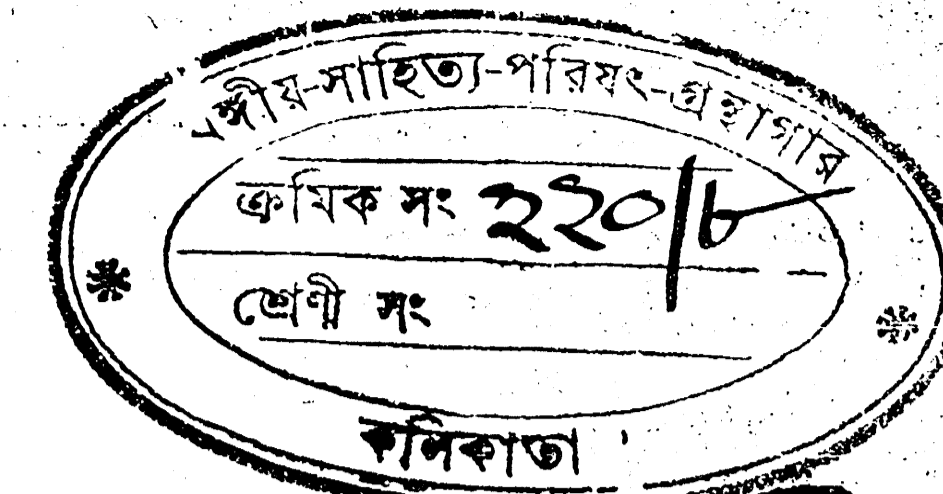 বঙ্গীয়-সাহিত্য-পরিষৎ-গ্রন্থাগার
ক্রমিক সং ২২০/৮
শ্রেণী সং
কলিকাতা